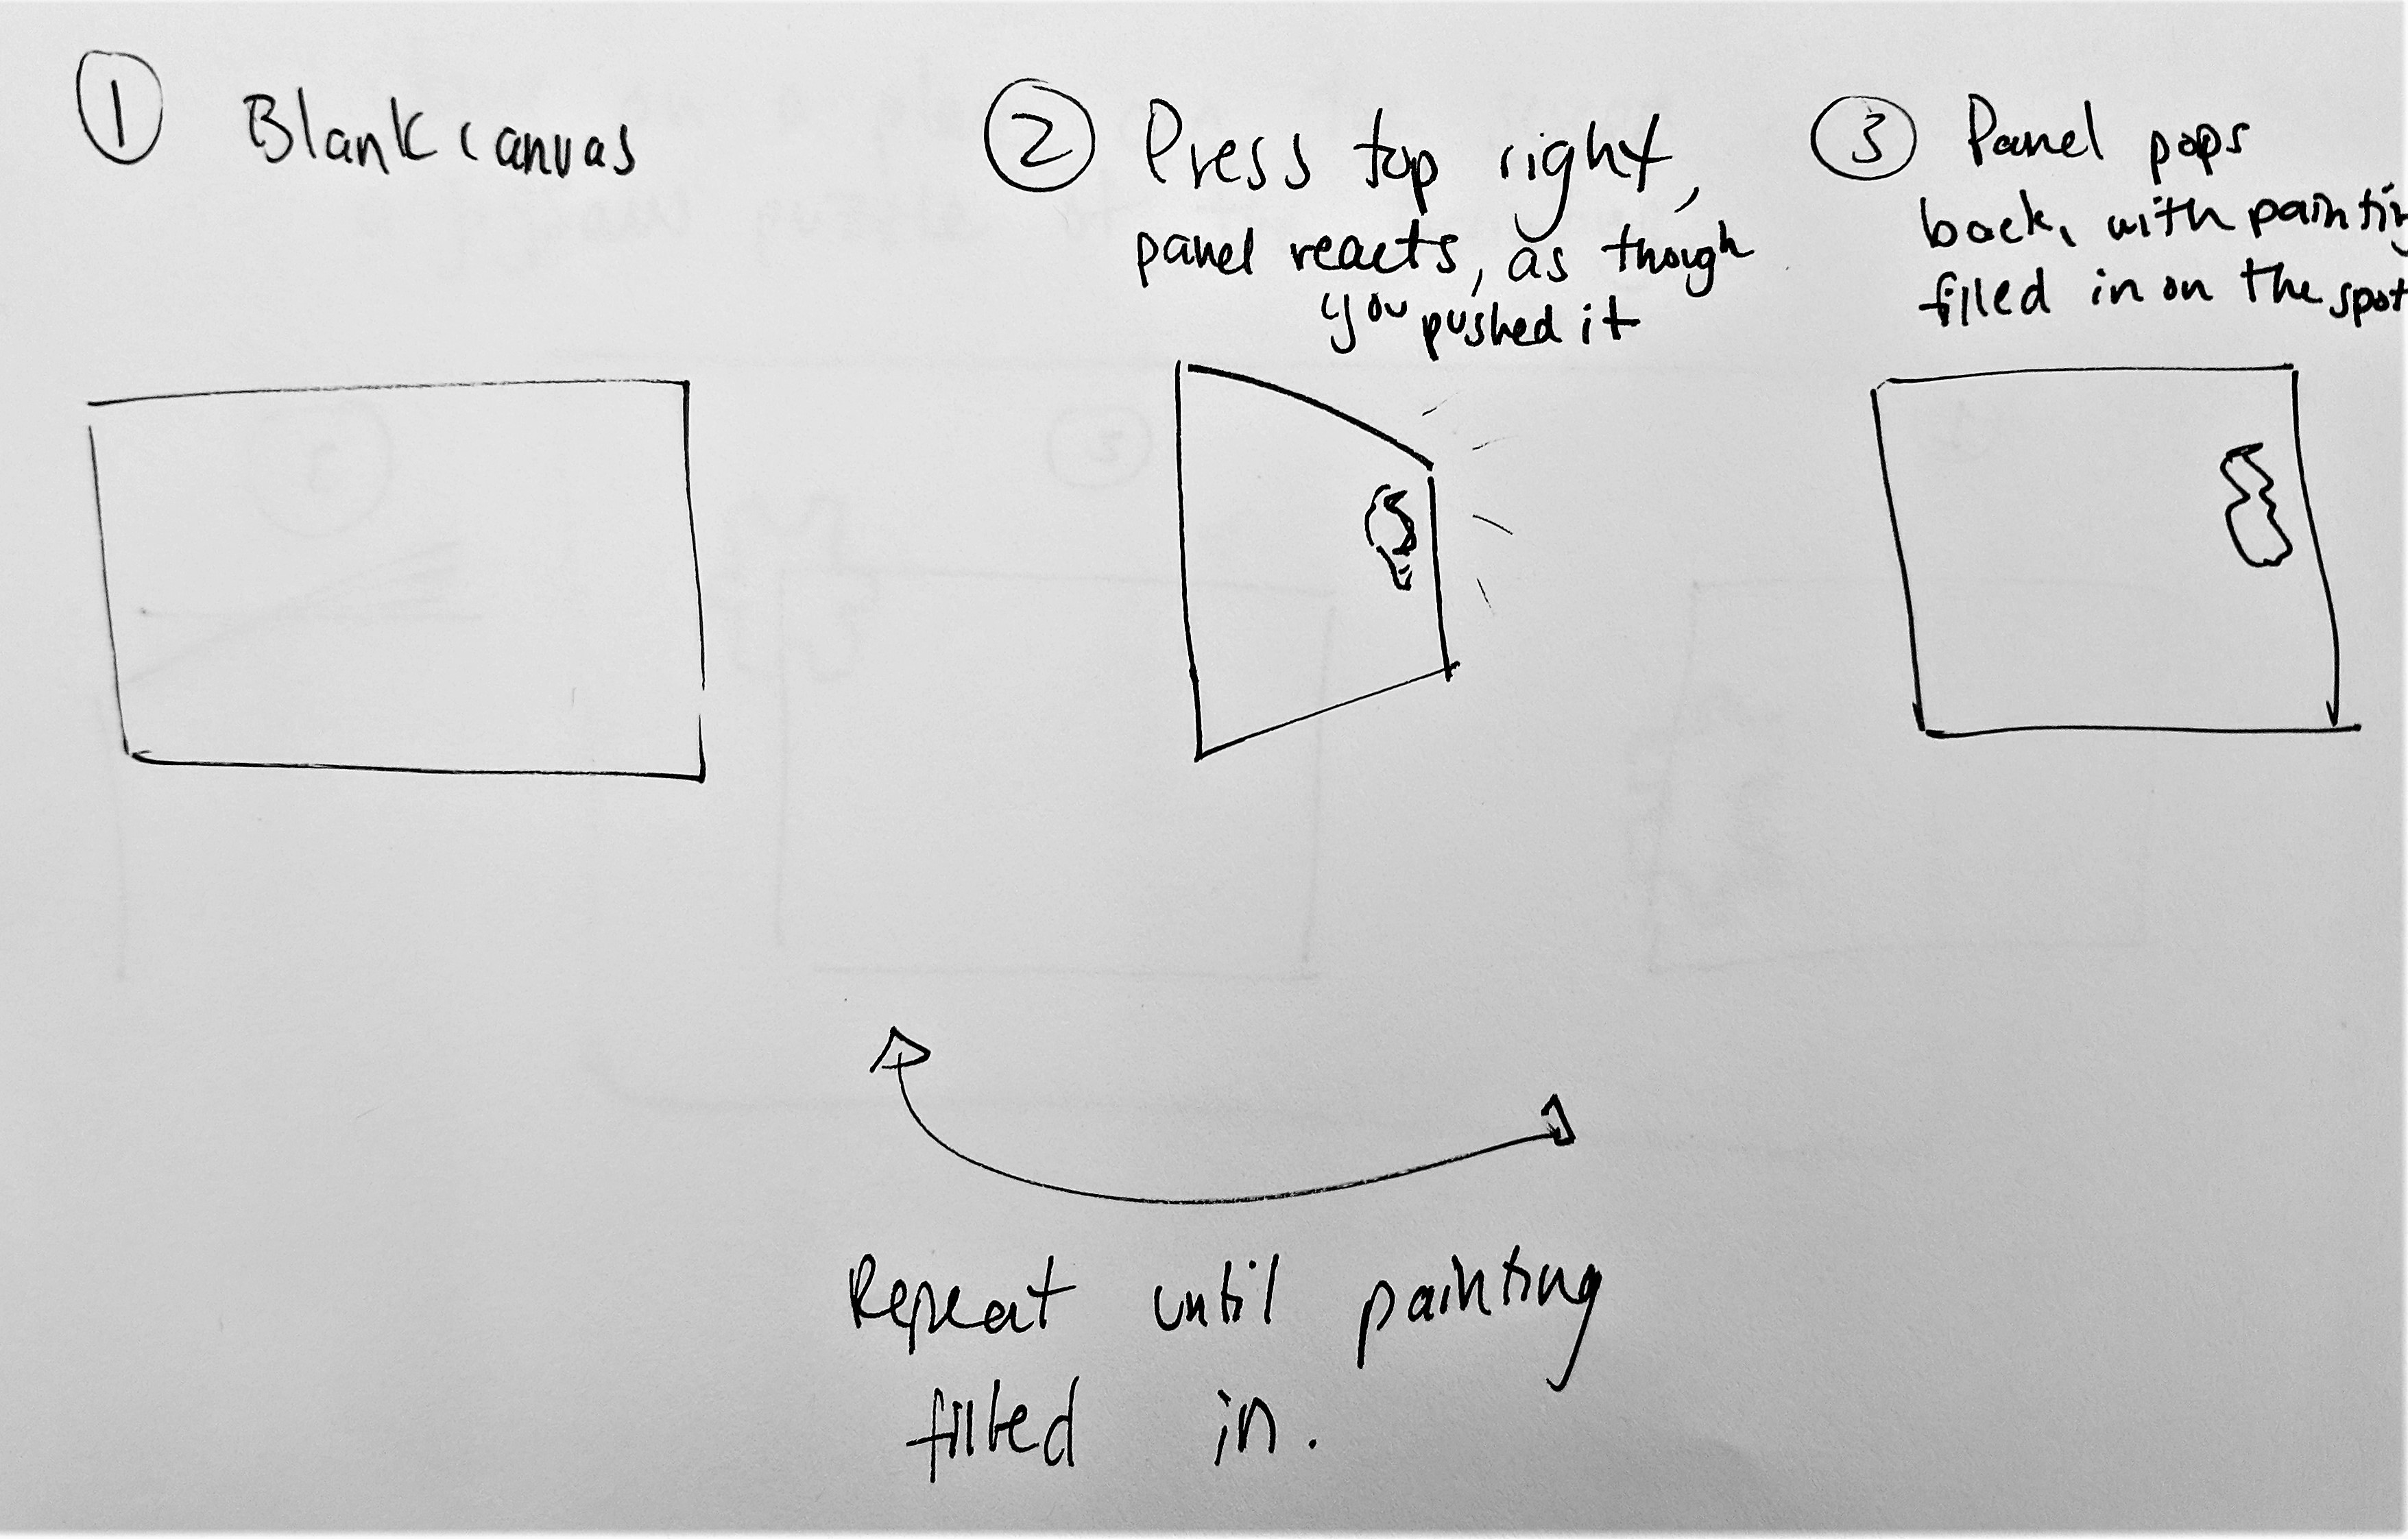 1 Blank canvas
2 Press top right,
panel reacts, as though
you pushed it
3 Panel pops
back, with paintin
filled in on the spot
Repeat until painting
filled in.